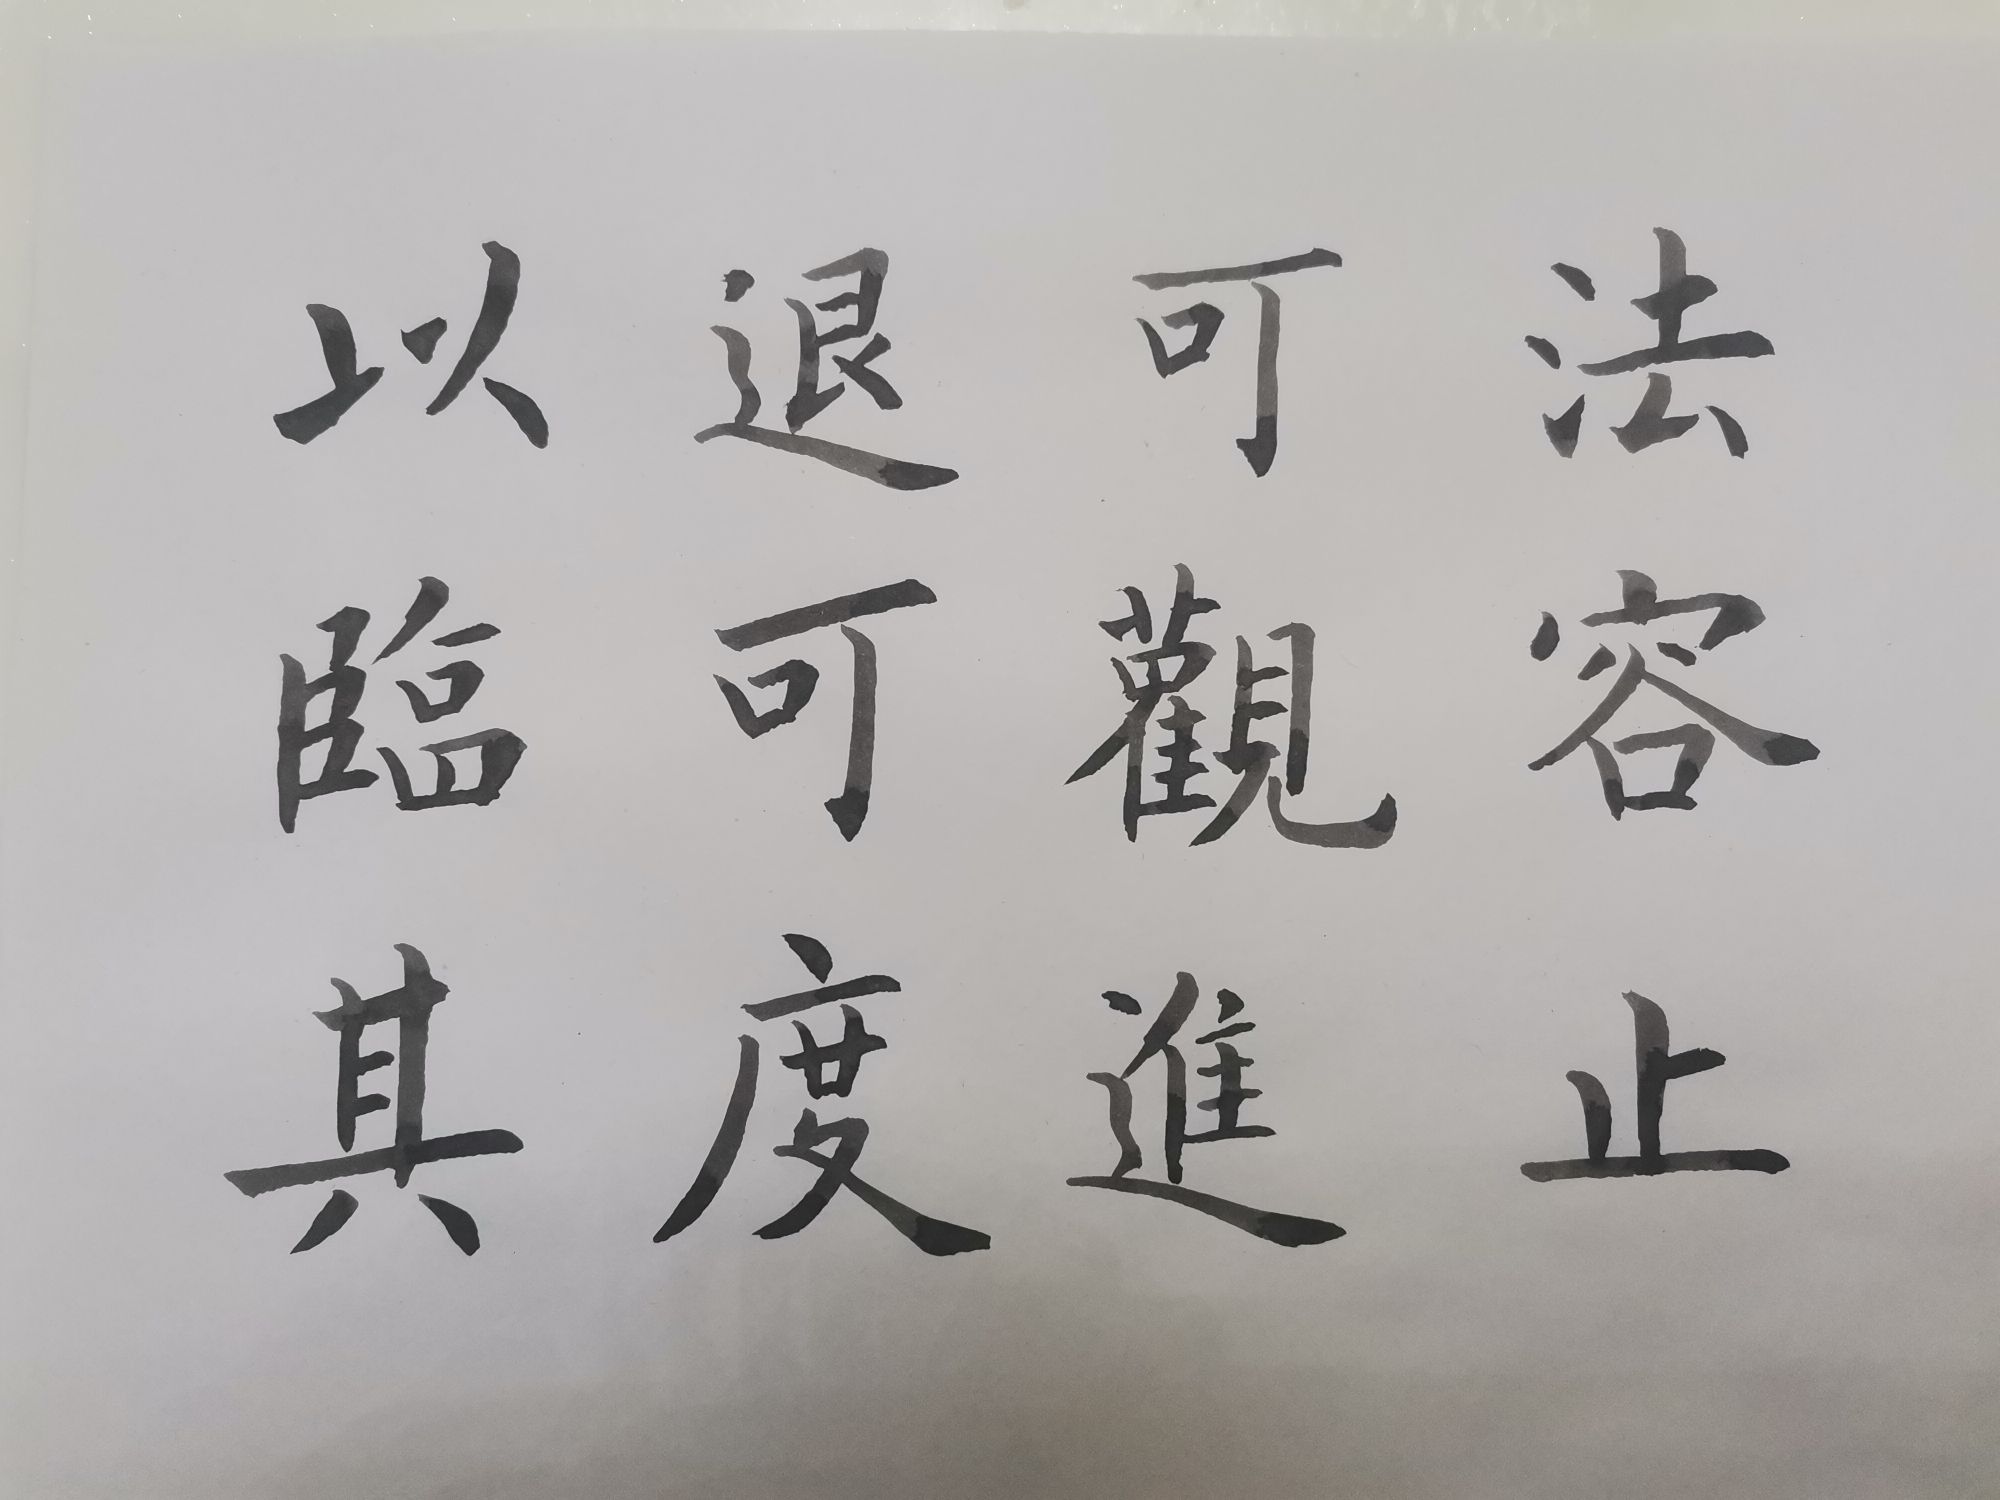 法容止
可觀進
退可度
以臨其